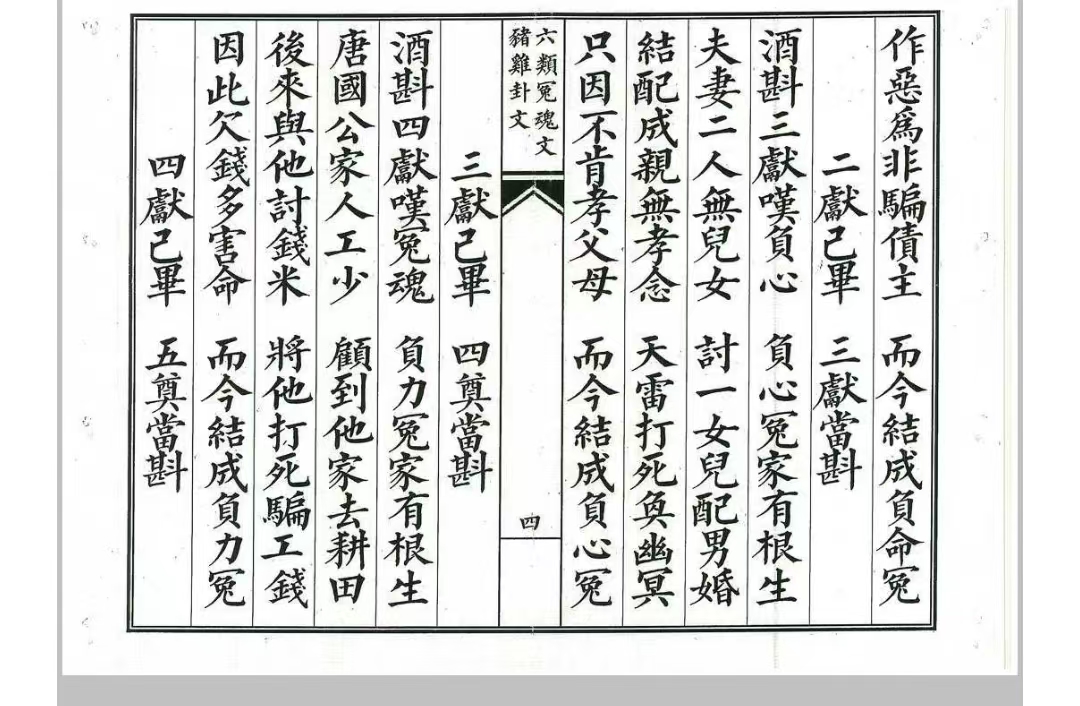 作惡爲非騙債主　而今結成負命冤
二獻己畢　三獻當斟
酒斟三獻嘆負心　負心冤家有根生
夫妻二人無兒女　討一女兒配男婚
結配成親無孝念　天雷打死奐幽冥
只因不肯孝父母　而今結成負心冤
六類冤魂文
豬雞卦文
四
三獻己畢　四奠當斟
酒斟四獻嘆冤魂　負力冤家有根生
唐國公家人工少　顧到他家去耕田
後來與他討錢米　將他打死騙工錢
因此欠錢多害命　而今結成負力冤
四獻己畢　五奠當斟